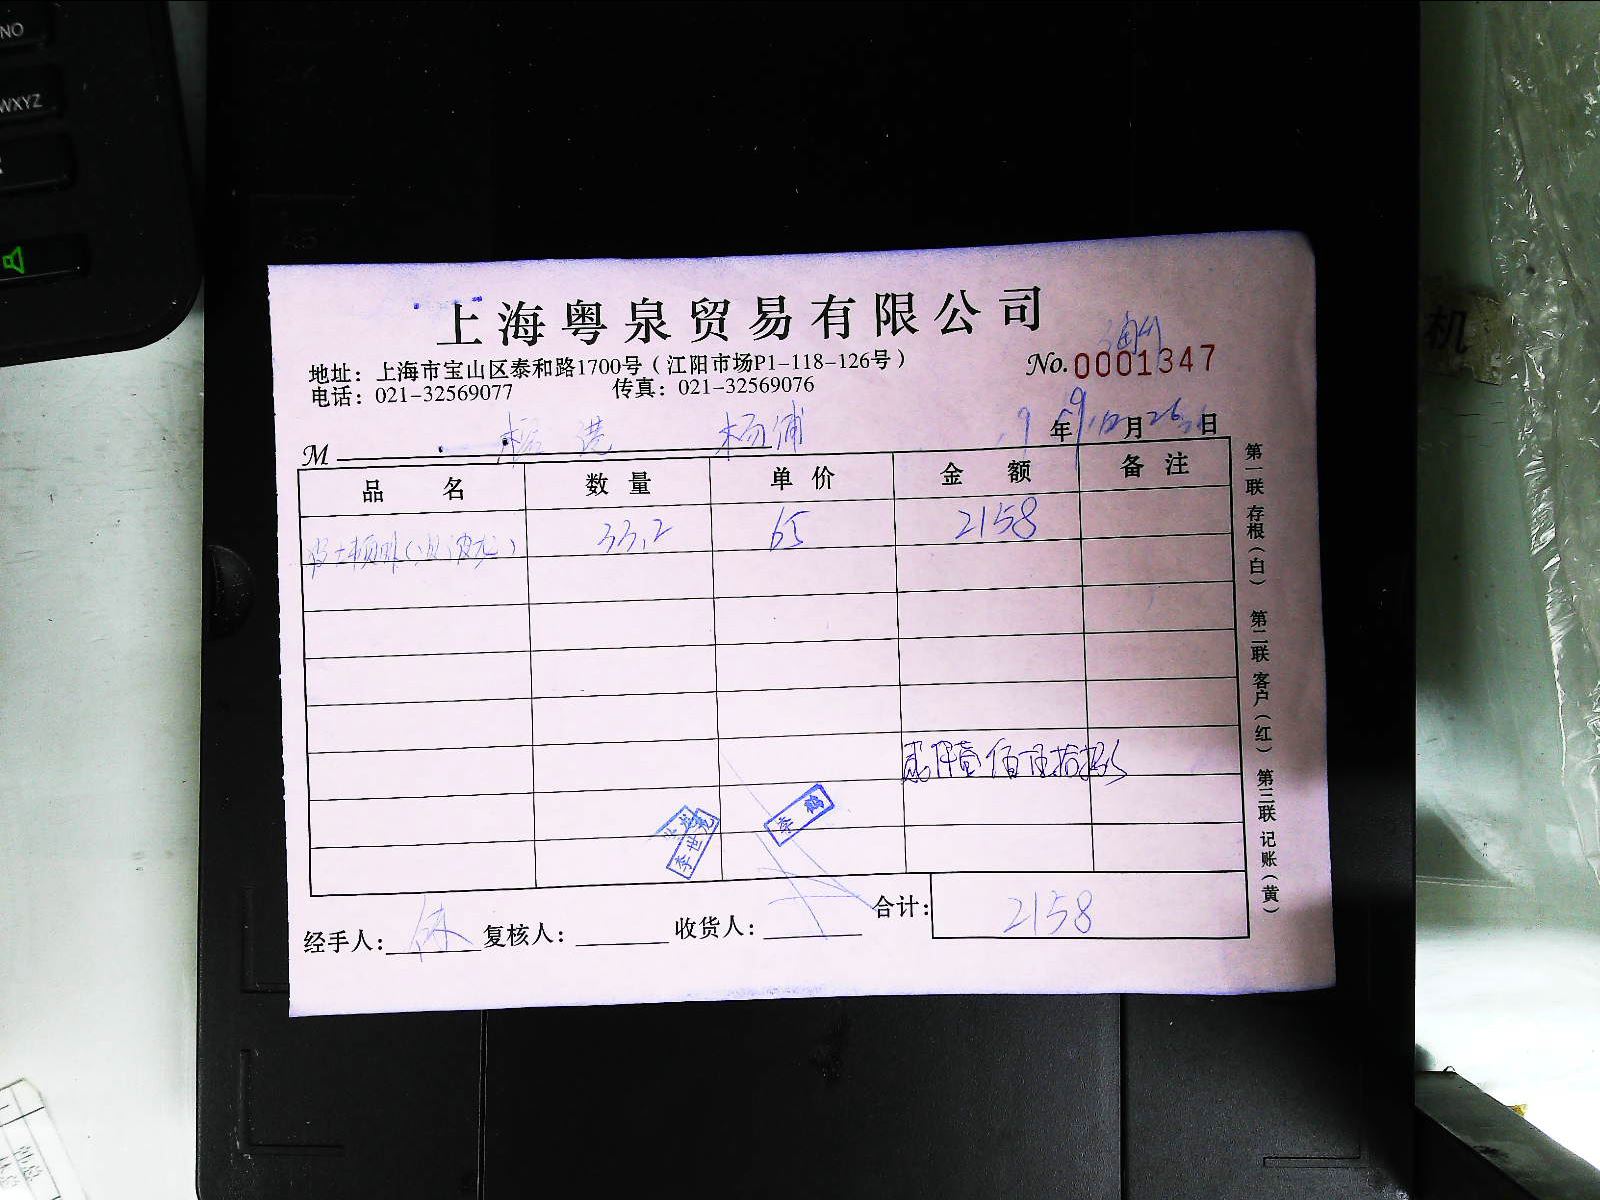 NO
WXYZ
机
上海粤泉贸易有限公司
地址：上海市宝山区泰和路1700号（江阳市场P1-118-126号）
No.0001347
电话：021-32569077 传真：021-32569076
M 杨浦 年 月 日
品名 数量 单价 金额 备注
33.2 65 2158
贰仟壹佰伍拾捌
李世龙
李鹤
经手人： 复核人： 收货人： 合计：2158
第一联 存根（白） 第二联 客户（红） 第三联 记账（黄）